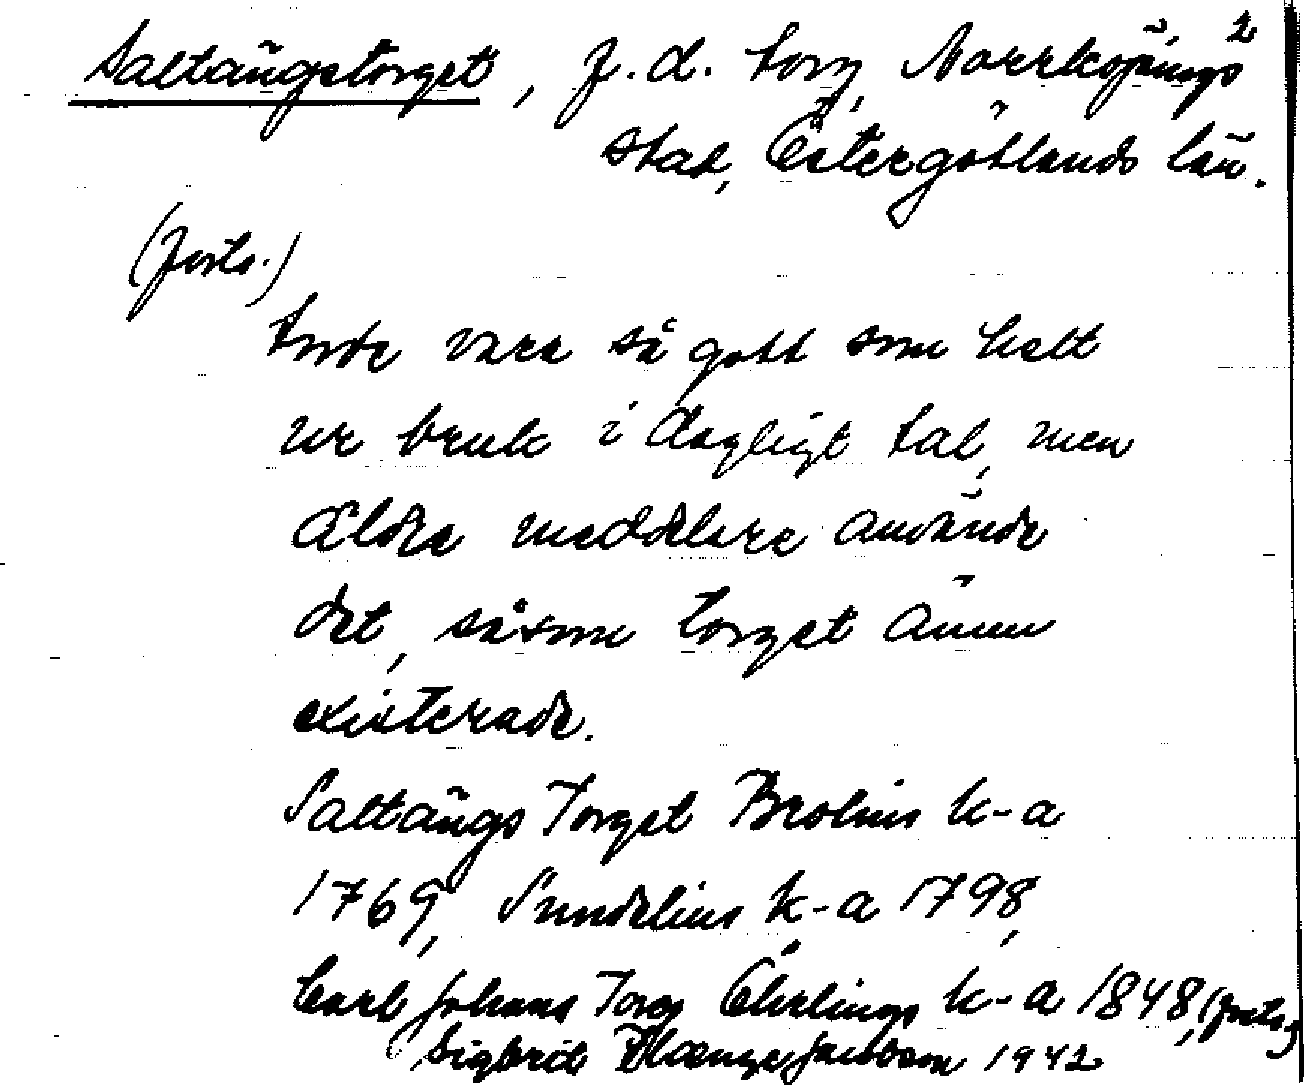 Saltängstorget, f.d. torg, Norrköpings 2
stad, Östergötlands län.
(forts.)
torde vara så gott som helt
ur bruk i dagligt tal, men
äldre meddelare använde
det, såsom torget ännu
existerade.
Saltängs Torget Brolins k-a
1769, Sundelius k-a 1798,
Carl Johans Torg Öhrlings k-a 1848, (forts.)
Sigbrit 1942